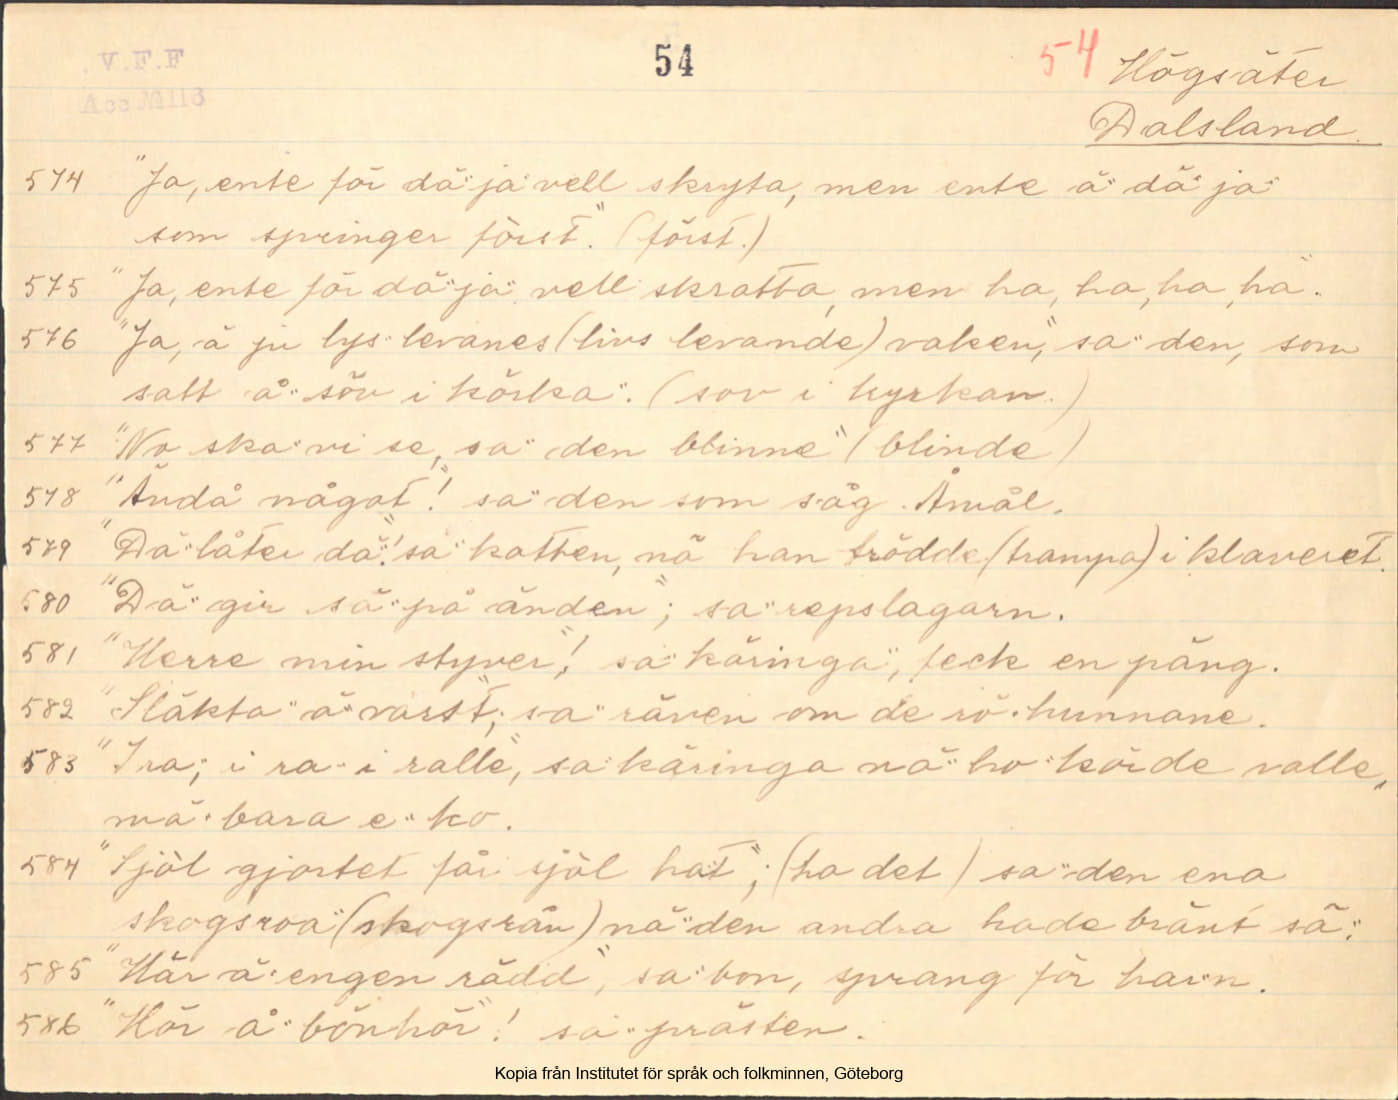 V.F.F
Acc № 113
54
54
Högsäter
Dalsland.
574 "Ja, ente för dä" ja" vell skryta, men ente ä" dä" ja"
som springer först". (först.)
575 "Ja, ente för dä" ja" vell skratta, men ha, ha, ha, ha".
576 "Ja, ä ju lys levanes (livs levande) vaken," sa" den, som
satt å" söv i körka". (sov i kyrkan.)
577 "No ska" vi se, sa" den blinne" (blinde)
578 "Ändå något"! sa" den som såg Åmål.
579 "Dä" låter dä"! sa" katten, nä han trödde (trampa) i klaveret.
580 "Dä" gir sä" på änden"; sa" repslagarn.
581 "Herre min styver"! sa" käringa", feck en päng.
582 "Släkta" ä" värst"; sa" räven om de rö" hunnane.
583 "Ira; i ra i ralle", sa" käringa nä" ho" körde valle,
mä" bara e" ko.
584 "Sjöl gjortet får sjöl hat"; (ha det) sa" den ena
skogsroa" (skogsrån) nä" den andra hade bränt sä".
585 "Här ä" engen rädd", sa" bon, sprang för harn.
586 "Hör å" bönhör"! sa" prästen.
Kopia från Institutet för språk och folkminnen, Göteborg